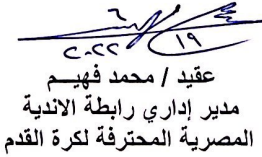 عقيد / محمد فهيـــم
مدير إداري رابطة الاندية
المصرية المحترفة لكرة القدم